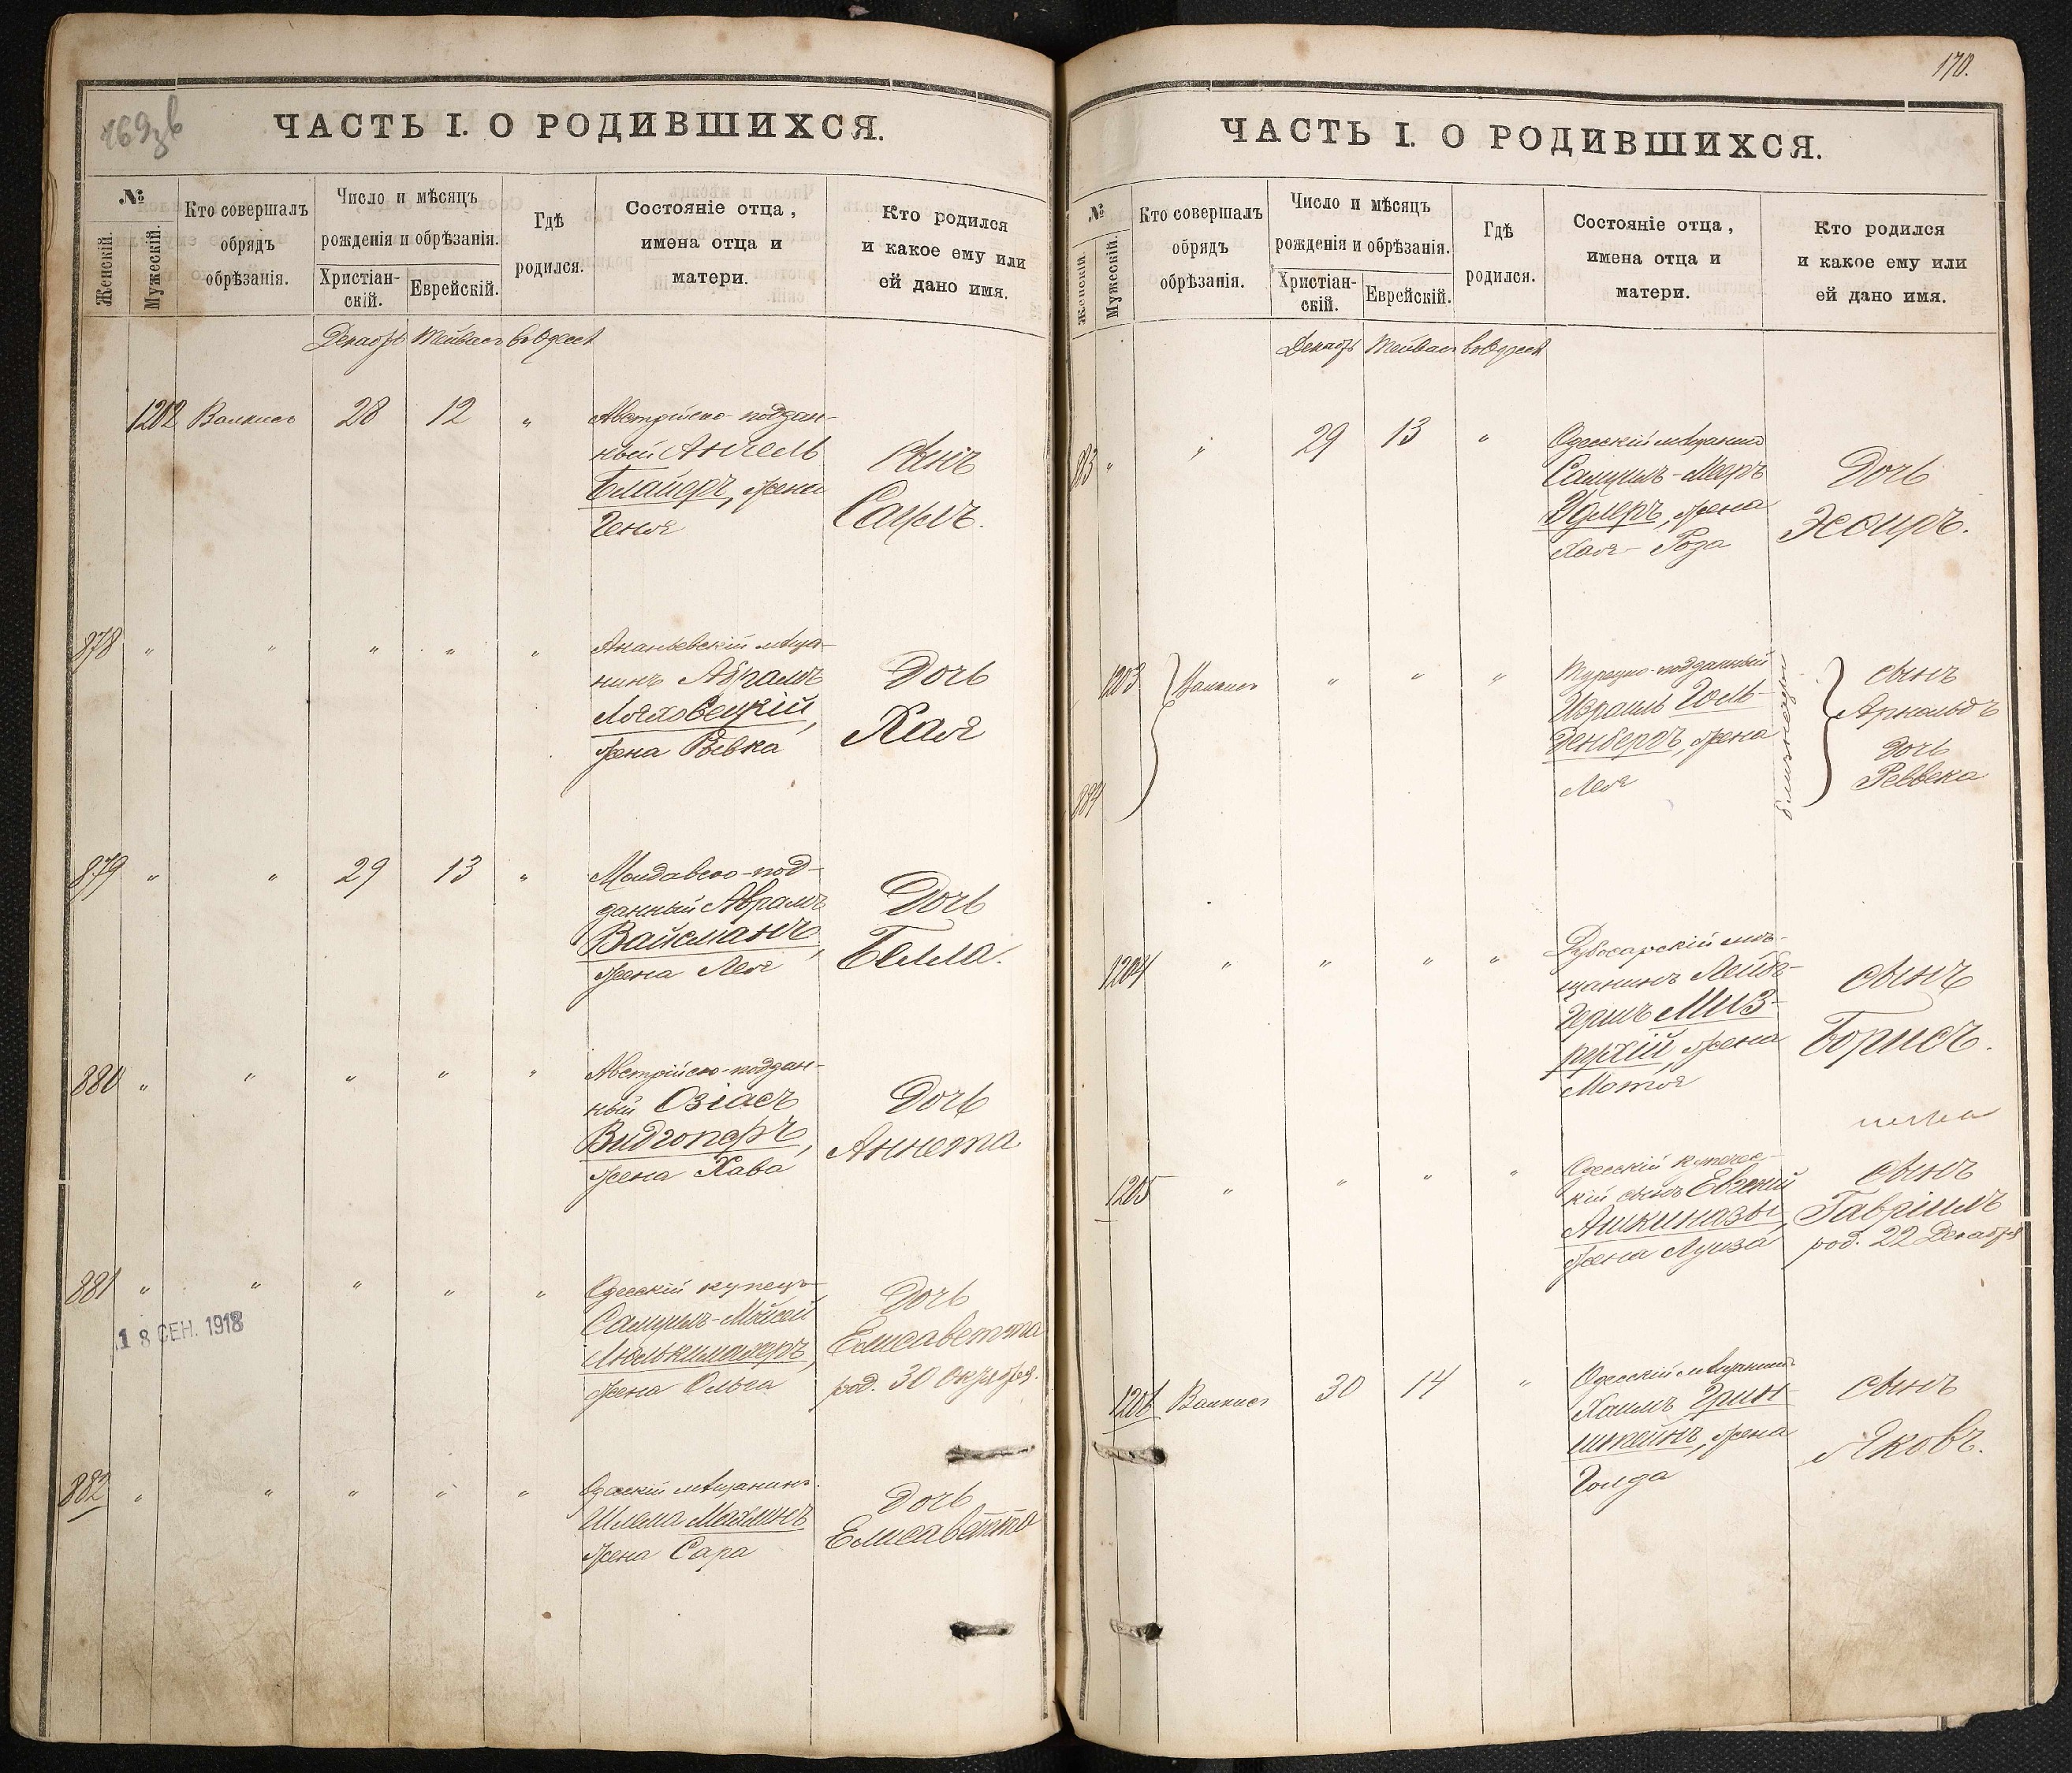 169зв
ЧАСТЬ I. О РОДИВШИХСЯ.
№
Женскій.
Мужескій.
Кто совершалъ
обрядъ
обрѣзанія.
Число и мѣсяцъ
рожденія и обрѣзанія.
Христіан-
скій.
Еврейскій.
Гдѣ
родился.
Состояніе отца,
имена отца и
матери.
Кто родился
и какое ему или
ей дано имя.
Декабрь Тейвасъ въ Одессѣ
1202 28 12 " Австрійско-поддан-
ный Ангель
Блайеръ, жена
Геня
Сынъ
878 " " " " " Ананьевскій мѣща-
нинъ Абрамъ
Ляховецкій,
жена Ривка
Дочь
Хая
879 " " 29 13 " Молдавско-под-
данный Абрамъ
Вайсманъ,
жена Лея
Дочь
Белла.
880 " " " " " Австрійско-поддан-
ный Озіасъ
Видгопфъ,
жена Хава
Дочь
Аннета
881 " " " " " Одесскій купецъ
Самуилъ-Мойсей
жена Ольга
Дочь
Елисаветта
род. 30 Октября.
18 СЕН. 1918
882 " " " " " Одесскій мѣщанинъ
Шлема Махлинъ
жена Сара
Дочь
Елисаветта
170.
ЧАСТЬ I. О РОДИВШИХСЯ.
№
Женскій.
Мужескій.
Кто совершалъ
обрядъ
обрѣзанія.
Число и мѣсяцъ
рожденія и обрѣзанія.
Христіан-
скій.
Еврейскій.
Гдѣ
родился.
Состояніе отца,
имена отца и
матери.
Кто родился
и какое ему или
ей дано имя.
Декабрь Тейвасъ въ Одессѣ
883 " " 29 13 " Одесскій мѣщанинъ
Самуилъ-Меръ
жена
Хая-Роза
Дочь
Эсѳирь.
1203 " " " Турецко-подданный
Израиль Голь-
денбергъ, жена
Лея
близнецы
Сынъ
Арнольдъ
Дочь
Реввека
884
1204 " " " " Дубосарскій мѣ-
щанинъ Лейба-
Гершъ Миз-
рухій, жена
Мотя
Сынъ
Борисъ.
1205 " " " " Одесскій купечес-
кій сынъ Евгеній
Ашкинази
жена Луиза
Сынъ
Гавріилъ
род. 22 Декабря
1206 30 14 " Одесскій мѣщанинъ
Хаимъ Грин-
штейнъ, жена
Голда
Сынъ
Яковъ.